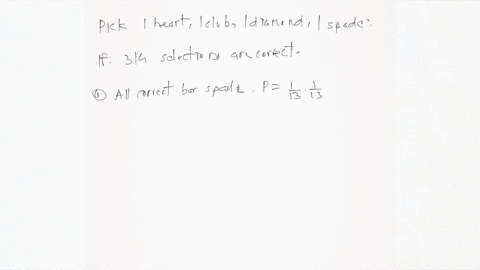 Pick 1 heart, 1 club, 1 diamond, 1 spade.
If: 3/4 selections are correct.
① All correct bar spade. P = 1/13 · 1/13